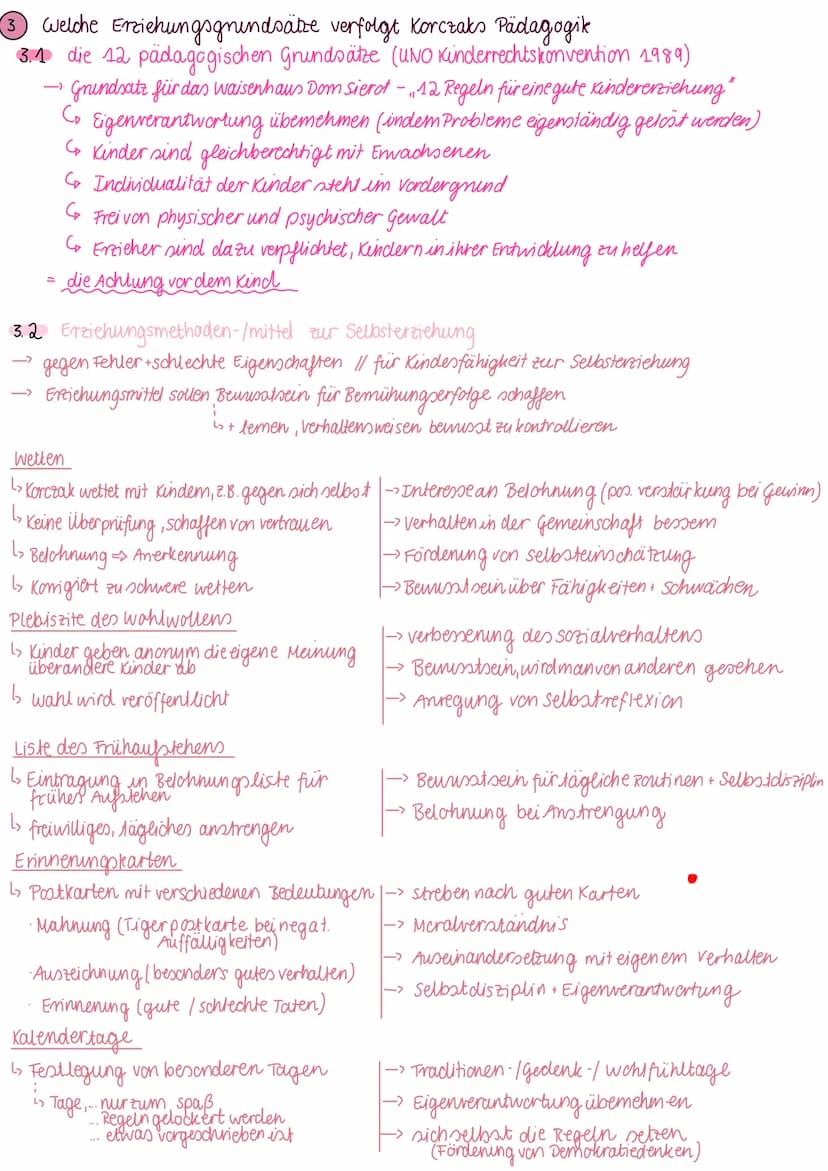 3 Welche Erziehungsgrundsätze verfolgt Korczaks Pädagogik
3.1 die 12 pädagogischen Grundsätze (UNO Kinderrechtskonvention 1989)
→ Grundsatz für das Waisenhaus Dom Sierot - „12 Regeln für eine gute Kindererziehung"
↳ Eigenverantwortung übernehmen (indem Probleme eigenständig gelöst werden)
↳ Kinder sind gleichberechtigt mit Erwachsenen
↳ Individualität der Kinder steht im Vordergrund
↳ Frei von physischer und psychischer Gewalt
↳ Erzieher sind dazu verpflichtet, Kindern in ihrer Entwicklung zu helfen
= die Achtung vor dem Kind
3.2 Erziehungsmethoden-/mittel zur Selbsterziehung
→ gegen Fehler + schlechte Eigenschaften // für Kindesfähigkeit zur Selbsterziehung
→ Erziehungsmittel sollen Bewusstsein für Bemühungserfolge schaffen
↳ + lernen, Verhaltensweisen bewusst zu kontrollieren
Wetten
↳ Korczak wettet mit Kindern, z.B. gegen sich selbst
↳ Keine Überprüfung, schaffen von vertrauen
↳ Belohnung ⇒ Anerkennung
↳ Korrigiert zu schwere wetten
→ Interesse an Belohnung (pos. verstärkung bei Gewinn)
→ Verhalten in der Gemeinschaft bessern
→ Förderung von Selbsteinschätzung
→ Bewusstsein über Fähigkeiten + Schwächen
Plebiszite des Wohlwollens
↳ Kinder geben anonym die eigene Meinung
über andere Kinder ab
↳ Wahl wird veröffentlicht
→ Verbesserung des Sozialverhaltens
→ Bewusstsein, wird man von anderen gesehen
→ Anregung von Selbstreflexion
Liste des Frühaufstehens
↳ Eintragung in Belohnungsliste für
frühes Aufstehen
↳ freiwilliges, tägliches anstrengen
→ Bewusstsein für tägliche Routinen + Selbstdisziplin
→ Belohnung bei Anstrengung
Erinnerungskarten
↳ Postkarten mit verschiedenen Bedeutungen
· Mahnung (Tigerpostkarte bei negat.
Auffälligkeiten)
· Auszeichnung (besonders gutes verhalten)
· Erinnerung (gute / schlechte Taten)
→ streben nach guten Karten
→ Moralverständnis
→ Auseinandersetzung mit eigenem Verhalten
→ Selbstdisziplin + Eigenverantwortung
Kalendertage
↳ Festlegung von besonderen Tagen
↳ Tage,... nur zum spaß
... Regeln gelockert werden
... etwas vorgeschrieben ist
→ Traditionen-/Gedenk-/Wohlfühltage
→ Eigenverantwortung übernehmen
→ sich selbst die Regeln setzen
(Förderung von Demokratiedenken)